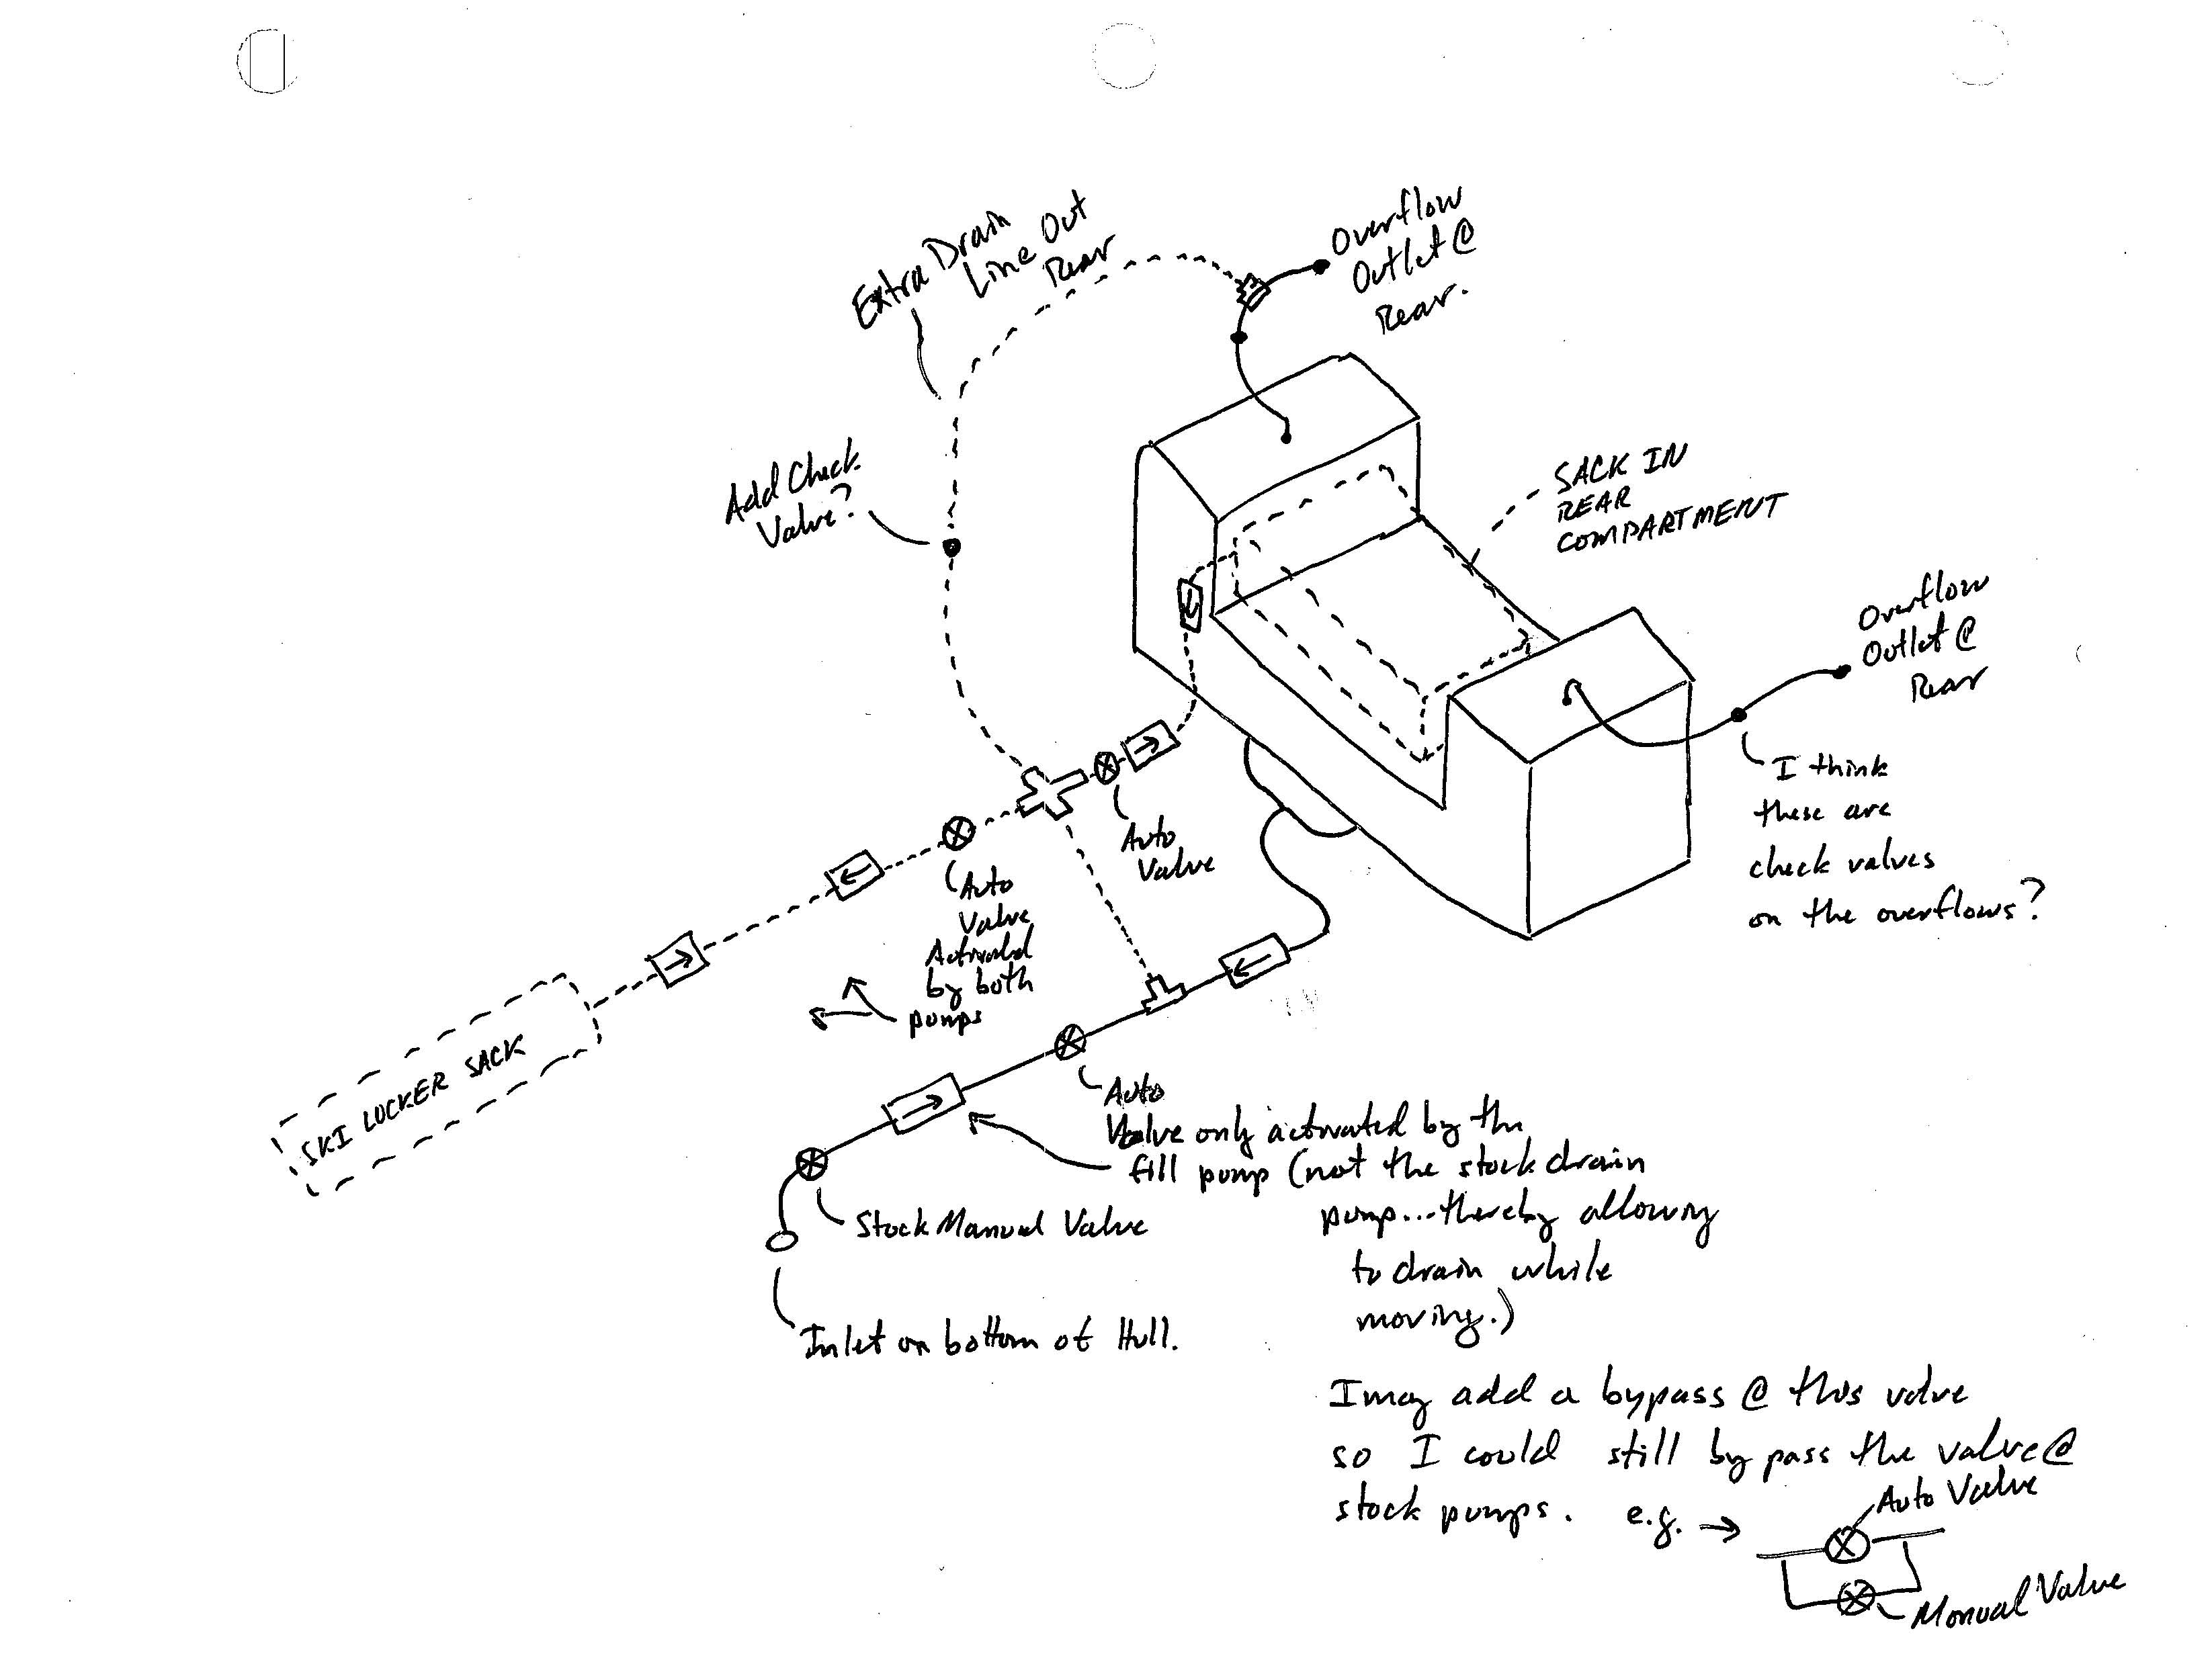 Extra Drain
Line Out
Rear
Overflow
Outlet @
Rear.
Add Check
Valve?
SACK IN
REAR
COMPARTMENT
Overflow
Outlet @
Rear
I think
these are
check valves
on the overflows?
Auto
Valve
Auto
Valve
Activated
by both
pumps
SKI LOCKER SACK
Auto
Valve only activated by the
fill pump (not the stock drain
pump...thereby allowing
to drain while
moving.)
Stock Manual Valve
Inlet on bottom of Hull.
I may add a bypass @ this valve
so I could still by pass the valve @
stock pumps. e.g. →
Auto Valve
Manual Valve